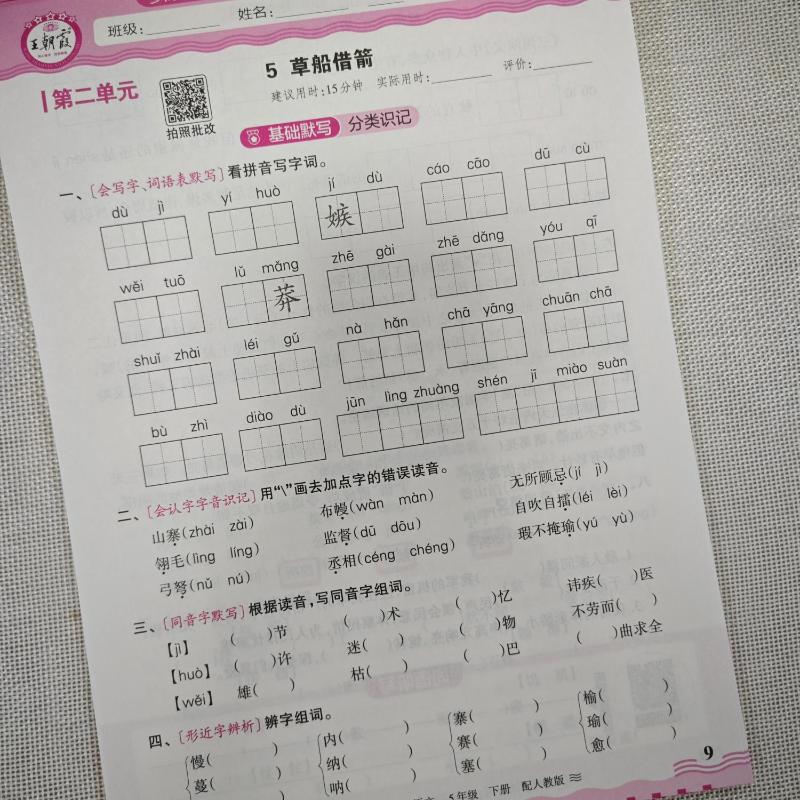 班级: 姓名:
王朝霞
第二单元
拍照批改
5 草船借箭
建议用时:15分钟 实际用时: 评价:
基础默写 分类识记
一、[会写字、词语表默写]看拼音写字词。
dù jì yí huò jí dù cáo cāo dū cù
嫉
wěi tuō lǔ mǎng zhē gài zhē dǎng yóu qī
莽
shuǐ zhài léi gǔ nà hǎn chā yāng chuān chā
bù zhì diào dù jūn lìng zhuàng shén jī miào suàn
二、[会认字字音识记]用“\”画去加点字的错误读音。
山寨(zhài zài) 布幔(wàn màn) 无所顾忌(jí jì)
翎毛(lìng líng) 监督(dū dōu) 自吹自擂(léi lèi)
弓弩(nǔ nú) 丞相(céng chéng) 瑕不掩瑜(yú yù)
三、[同音字默写]根据读音,写同音字组词。
【jì】 ( )节 ( )术 ( )忆 讳疾( )医
【huò】 ( )许 迷( ) ( )物 不劳而( )
【wěi】 雄( ) 枯( ) ( )巴 ( )曲求全
四、[形近字辨析]辨字组词。
慢( ) 内( ) 寨( ) 榆( )
蔓( ) 纳( ) 赛( ) 瑜( )
呐( ) 塞( ) 愈( )
5年级 下册 配人教版
9